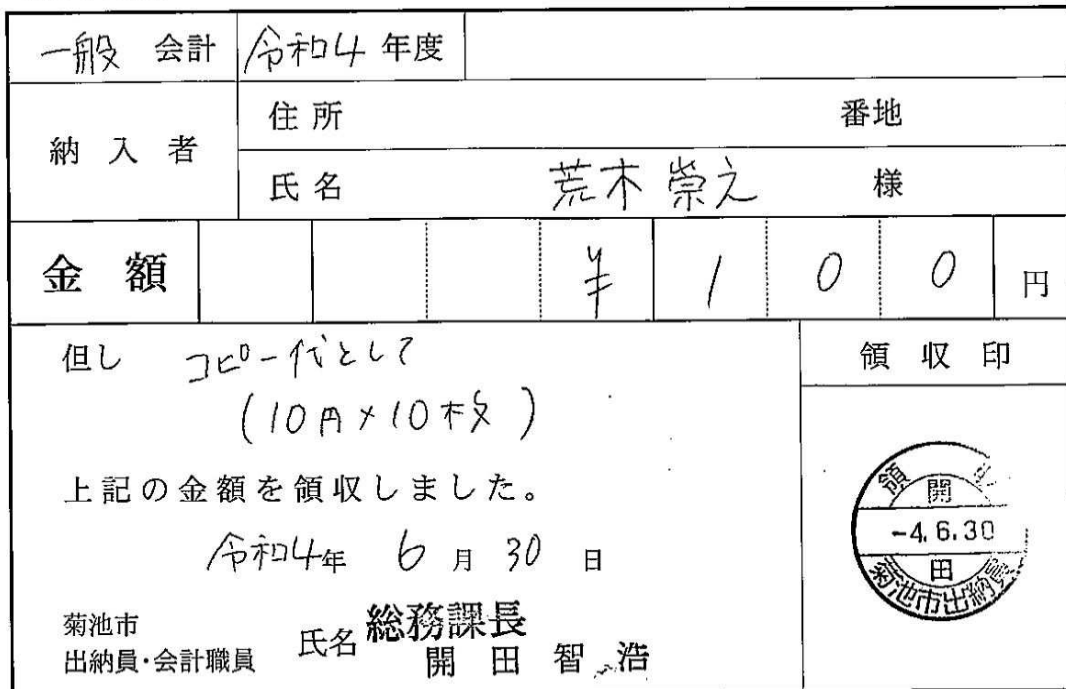 一般 会計 令和4 年度
納入者 住所 番地
氏名 荒木崇之 様
金額 ¥100円
但し コピー代として
(10円×10枚)
領収印
上記の金額を領収しました。
令和4年 6月 30日
菊池市
出納員・会計職員 氏名 総務課長
開田智浩
領
開
-4.6.30
田
菊池市出納員